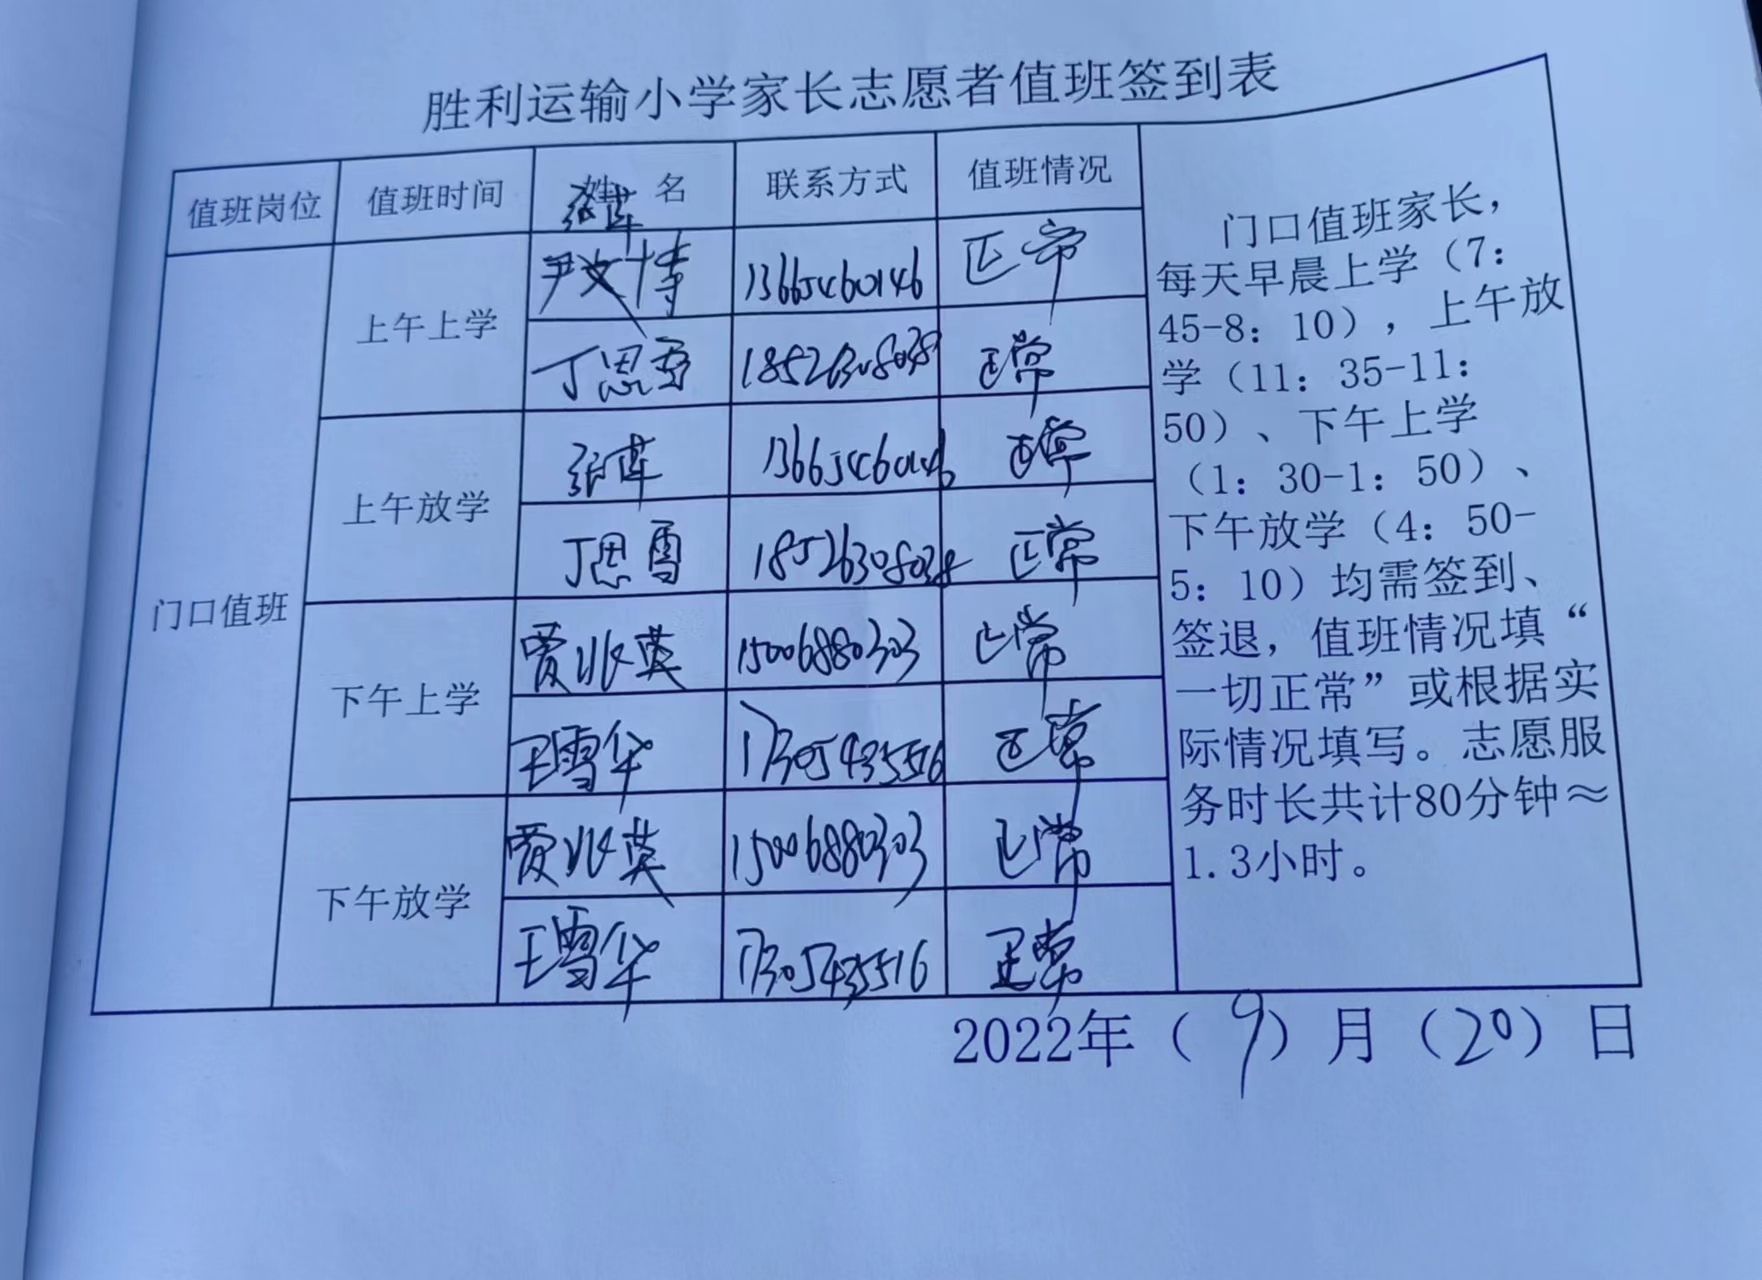 胜利运输小学家长志愿者值班签到表
值班岗位 值班时间 姓 名 联系方式 值班情况
门口值班
上午上学
尹文博 13665460146 正常
丁思雪 18526308038 正常
上午放学
13665460146 正常
丁思雪 18526308038 正常
下午上学
贾兆英 15006880303 正常
王雪华 17305435516 正常
下午放学
贾兆英 15006880303 正常
王雪华 17305435516 正常
门口值班家长，
每天早晨上学（7：
45-8：10），上午放
学（11：35-11：
50）、下午上学
（1：30-1：50）、
下午放学（4：50-
5：10）均需签到、
签退，值班情况填“
一切正常”或根据实
际情况填写。志愿服
务时长共计80分钟≈
1.3小时。
2022年（9）月（20）日